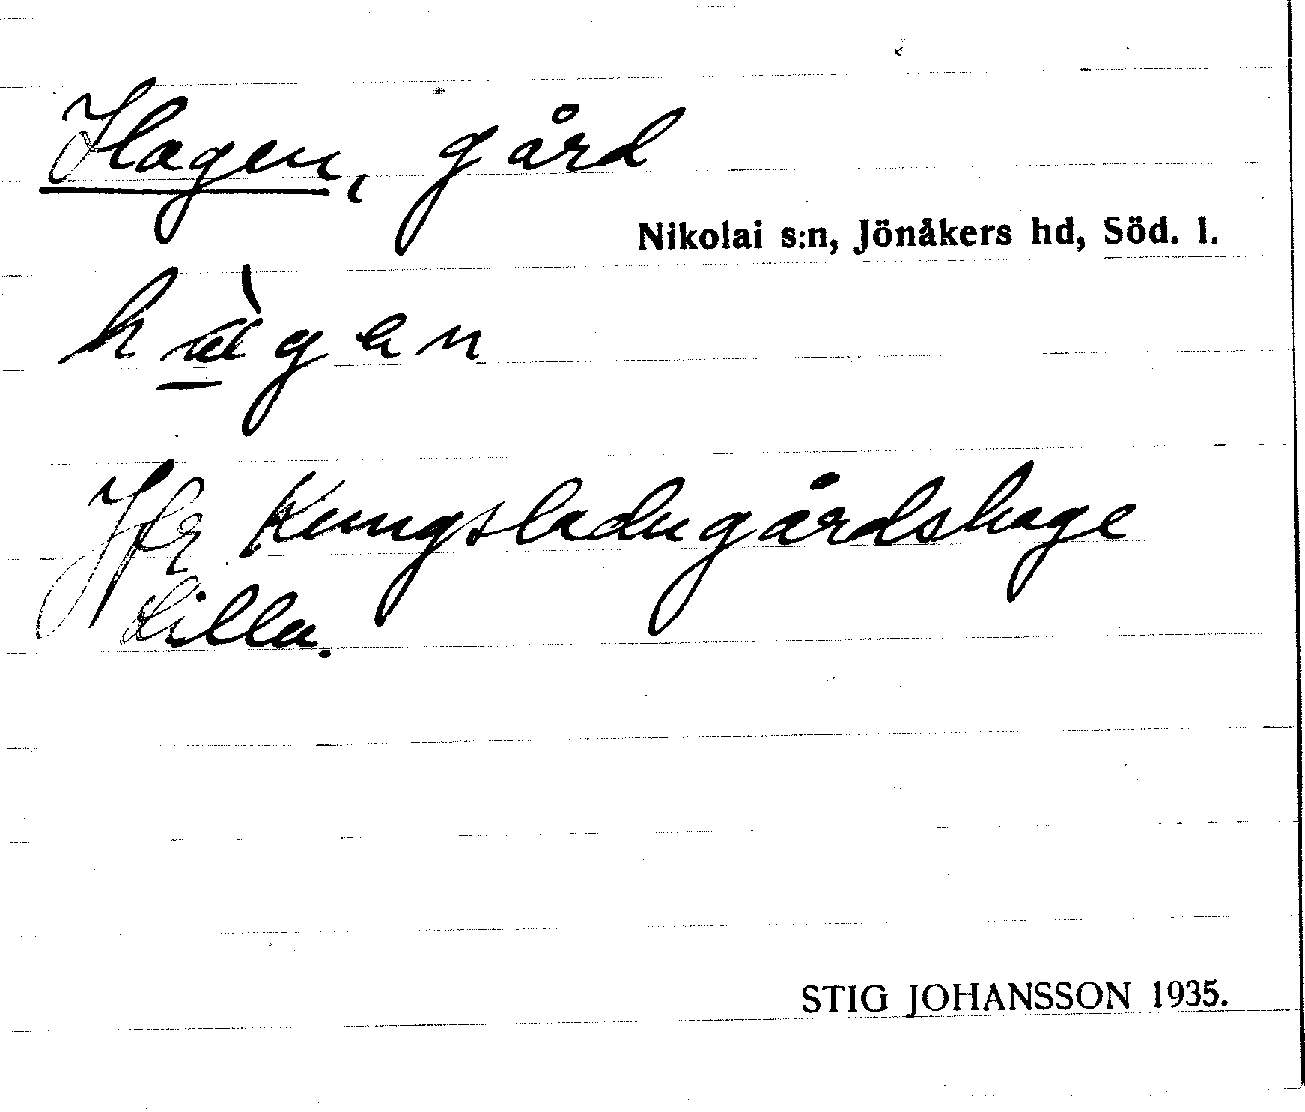 Hagen, gård
Nikolai s:n, Jönåkers hd, Söd. l.
hàgen
Jfr Kungsladugårdshage
Lilla.
STIG JOHANSSON 1935.